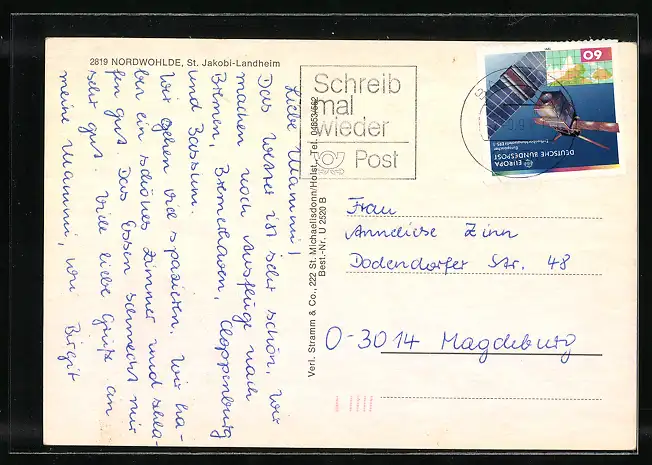 2819 NORDWOHLDE, St. Jakobi-Landheim
Liebe Mammi!
Das Wetter ist sehr schön. Wir
machen noch Ausflüge nach
Bremen, Bremerhaven, Cloppenburg
und Bassum.
Wir gehen viel spazieren. Wir ha-
ben ein schönes Zimmer und schla-
fen gut. Das Essen schmeckt mir
sehr gut. Viele liebe Grüße an
meine Mammi, von Birgit
Verl. Stramm & Co., 222 St. Michaelisdonn/Holst., Tel. 04853/562
Best.-Nr. U 2520 B
Schreib
mal
wieder
Post
60
EUROPA
DEUTSCHE BUNDESPOST
Frau
Anneliese Zinn
Dodendorfer Str. 48
O-3014 Magdeburg